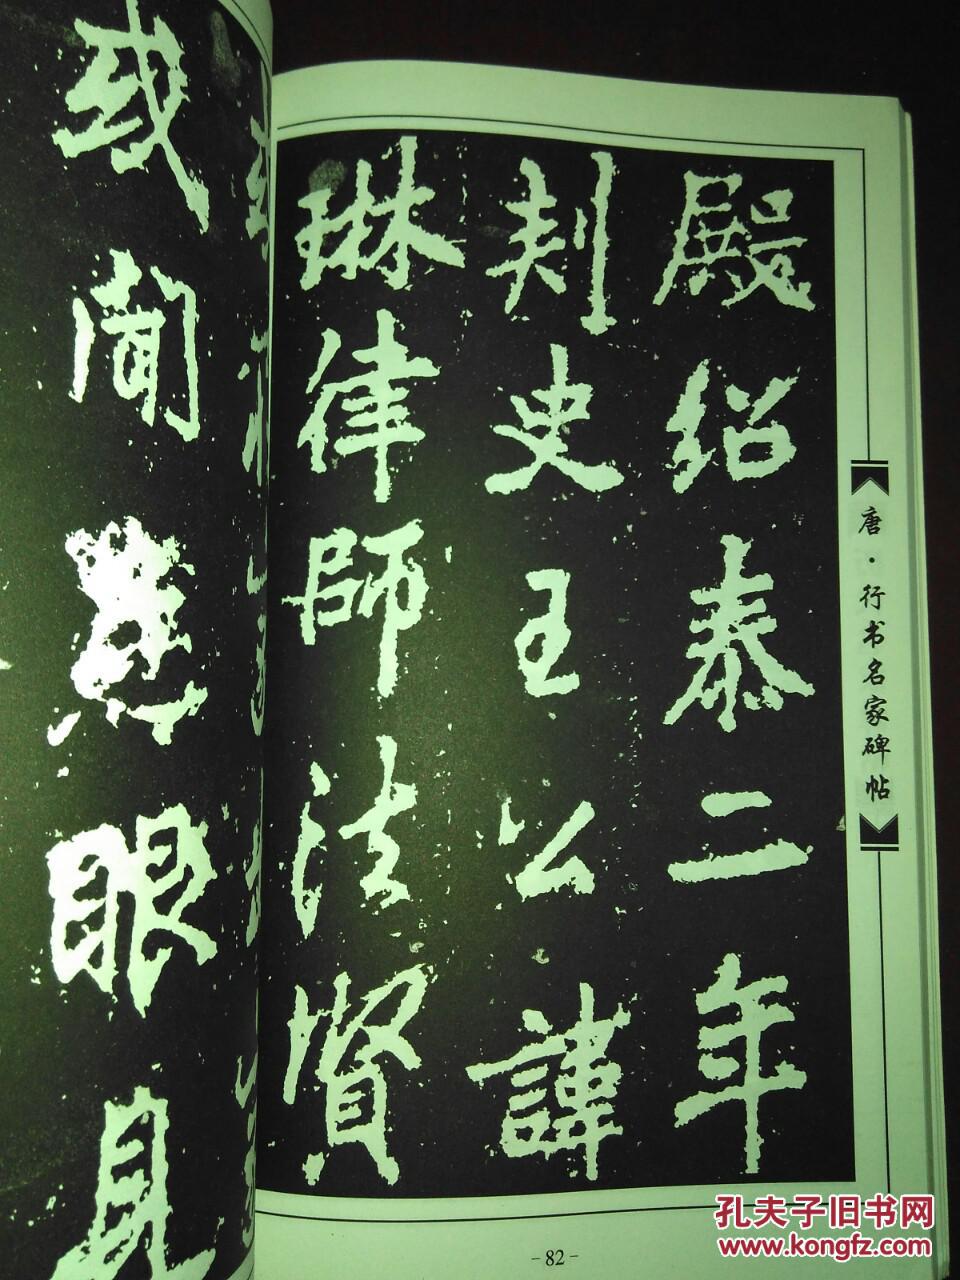 殿绍泰二年
刺史王公諱
琳律師法賢
或聞
眼見
唐·行书名家碑帖
-82-
孔夫子旧书网
www.kongfz.com